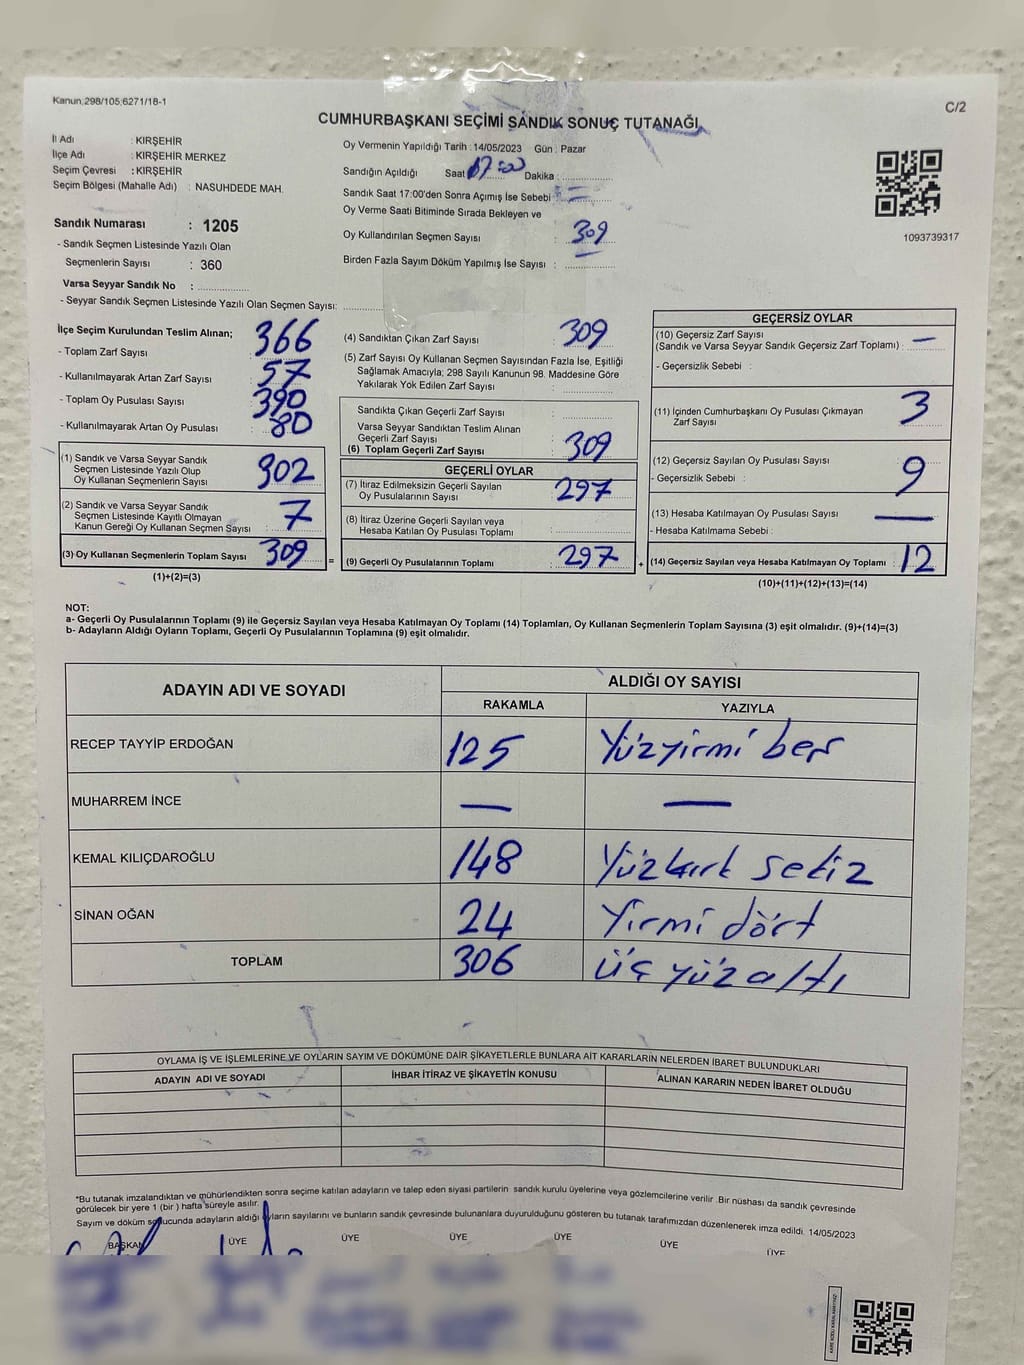 Kanun,298/105;6271/18-1
C/2
CUMHURBAŞKANI SEÇİMİ SANDIK SONUÇ TUTANAĞI
İl Adı : KIRŞEHİR
İlçe Adı : KIRŞEHİR MERKEZ
Seçim Çevresi : KIRŞEHİR
Seçim Bölgesi (Mahalle Adı) : NASUHDEDE MAH.
Sandık Numarası : 1205
- Sandık Seçmen Listesinde Yazılı Olan
Seçmenlerin Sayısı : 360
Varsa Seyyar Sandık No :
- Seyyar Sandık Seçmen Listesinde Yazılı Olan Seçmen Sayısı:
Oy Vermenin Yapıldığı Tarih : 14/05/2023 Gün : Pazar
Sandığın Açıldığı Saat 17:00 Dakika :
Sandık Saat 17:00'den Sonra Açımış İse Sebebi :
Oy Verme Saati Bitiminde Sırada Bekleyen ve
Oy Kullandırılan Seçmen Sayısı : 309
Birden Fazla Sayım Döküm Yapılmış İse Sayısı :
1093739317
İlçe Seçim Kurulundan Teslim Alınan;
- Toplam Zarf Sayısı : 366
- Kullanılmayarak Artan Zarf Sayısı : 57
- Toplam Oy Pusulası Sayısı : 390
- Kullanılmayarak Artan Oy Pusulası : 80
(1) Sandık ve Varsa Seyyar Sandık
Seçmen Listesinde Yazılı Olup
Oy Kullanan Seçmenlerin Sayısı : 302
(2) Sandık ve Varsa Seyyar Sandık
Seçmen Listesinde Kayıtlı Olmayan
Kanun Gereği Oy Kullanan Seçmen Sayısı : 7
(3) Oy Kullanan Seçmenlerin Toplam Sayısı : 309 =
(1)+(2)=(3)
(4) Sandıktan Çıkan Zarf Sayısı : 309
(5) Zarf Sayısı Oy Kullanan Seçmen Sayısından Fazla İse, Eşitliği
Sağlamak Amacıyla; 298 Sayılı Kanunun 98. Maddesine Göre
Yakılarak Yok Edilen Zarf Sayısı :
Sandıkta Çıkan Geçerli Zarf Sayısı :
Varsa Seyyar Sandıktan Teslim Alınan
Geçerli Zarf Sayısı :
(6) Toplam Geçerli Zarf Sayısı : 309
GEÇERLİ OYLAR
(7) İtiraz Edilmeksizin Geçerli Sayılan
Oy Pusulalarının Sayısı : 297
(8) İtiraz Üzerine Geçerli Sayılan veya
Hesaba Katılan Oy Pusulası Toplamı :
(9) Geçerli Oy Pusulalarının Toplamı : 297 +
GEÇERSİZ OYLAR
(10) Geçersiz Zarf Sayısı
(Sandık ve Varsa Seyyar Sandık Geçersiz Zarf Toplamı) : —
- Geçersizlik Sebebi :
(11) İçinden Cumhurbaşkanı Oy Pusulası Çıkmayan
Zarf Sayısı : 3
(12) Geçersiz Sayılan Oy Pusulası Sayısı : 9
- Geçersizlik Sebebi :
(13) Hesaba Katılmayan Oy Pusulası Sayısı : —
- Hesaba Katılmama Sebebi :
(14) Geçersiz Sayılan veya Hesaba Katılmayan Oy Toplamı : 12
(10)+(11)+(12)+(13)=(14)
NOT:
a- Geçerli Oy Pusulalarının Toplamı (9) ile Geçersiz Sayılan veya Hesaba Katılmayan Oy Toplamı (14) Toplamları, Oy Kullanan Seçmenlerin Toplam Sayısına (3) eşit olmalıdır. (9)+(14)=(3)
b- Adayların Aldığı Oyların Toplamı, Geçerli Oy Pusulalarının Toplamına (9) eşit olmalıdır.
ADAYIN ADI VE SOYADI ALDIĞI OY SAYISI
RAKAMLA YAZIYLA
RECEP TAYYİP ERDOĞAN 125 Yüzyirmi beş
MUHARREM İNCE — —
KEMAL KILIÇDAROĞLU 148 Yüzkırk sekiz
SİNAN OĞAN 24 Yirmi dört
TOPLAM 306 Üç yüz altı
OYLAMA İŞ VE İŞLEMLERİNE VE OYLARIN SAYIM VE DÖKÜMÜNE DAİR ŞİKAYETLERLE BUNLARA AİT KARARLARIN NELERDEN İBARET BULUNDUKLARI
ADAYIN ADI VE SOYADI İHBAR İTİRAZ VE ŞİKAYETİN KONUSU ALINAN KARARIN NEDEN İBARET OLDUĞU
*Bu tutanak imzalandıktan ve mühürlendikten sonra seçime katılan adayların ve talep eden siyasi partilerin sandık kurulu üyelerine veya gözlemcilerine verilir .Bir nüshası da sandık çevresinde
görülecek bir yere 1 (bir ) hafta süreyle asılır.
Sayım ve döküm sonucunda adayların aldığı oyların sayılarını ve bunların sandık çevresinde bulunanlara duyurulduğunu gösteren bu tutanak tarafımızdan düzenlenerek imza edildi. 14/05/2023
BAŞKAN ÜYE ÜYE ÜYE ÜYE ÜYE ÜYE